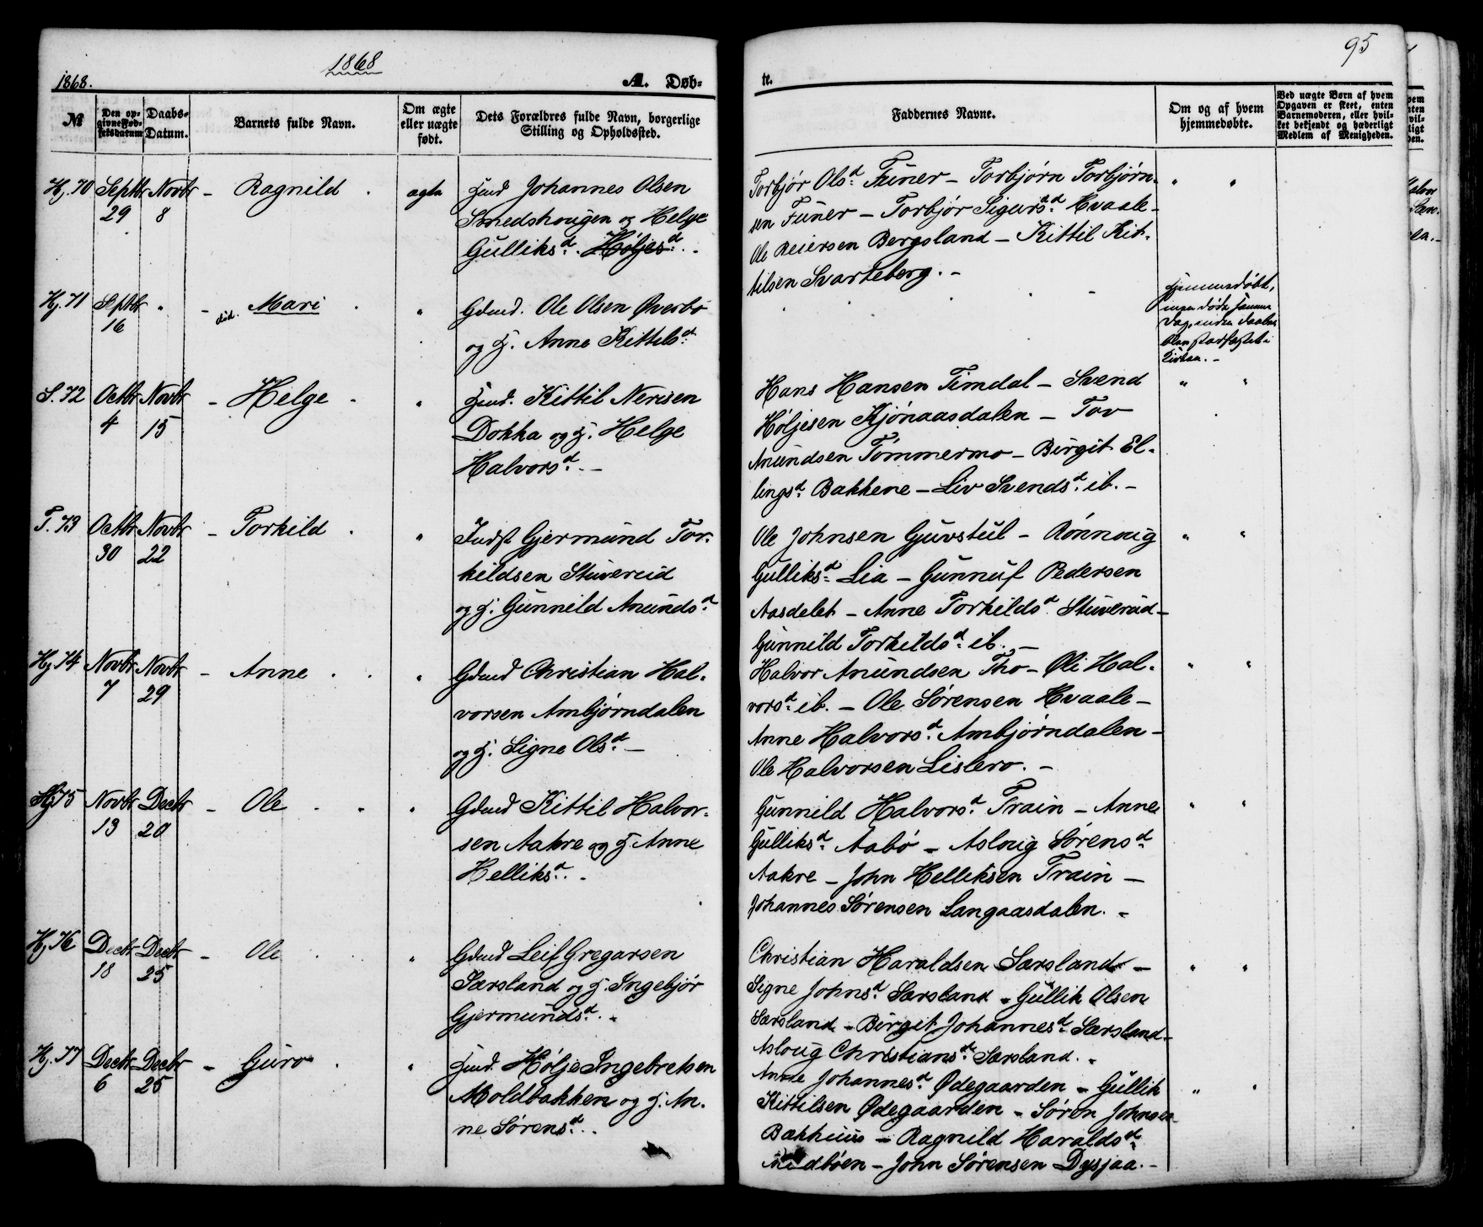 1868
1868. A. Døb- te. 95
№ Den opgivne Fødselsdatum Daabs-Datum. Barnets fulde Navn. Om ægte eller uægte født. Dets Forældres fulde Navn, borgerlige Stilling og Opholdssted.
Faddernes Navne. Om og af hvem hjemmedøbte. Ved uægte Børn af hvem Opgaven er skeet, enten Barnemoderen, eller hvilket bekjendt og hæderligt Medlem af Menigheden.
Hj. 70 Septbr 29 Novbr 8 - Ragnild. ægte Huusmd Johannes Olsen
Smedshougen og Helge
Gulliksd. Høljesd.
Torbjør Olsd. Funer - Torbjørn Torbjørn-
sen Funer - Torbjør Sigursd. Hvaale -
Ole Reiersen Bergsland - Kittil Kit-
tilsen Svarteberg. - " "
Hj. 71 Septbr 16 " - død. Mari " Gdmd. Ole Olsen Øverbø
og H. Anne Kittilsd.
Hjemmedøbt,
døde samme
Dag,
S. 72 Octbr 4 Novbr 15 - Helge " Hmd. Kittil Nerisen
Dokka og H. Helge
Halvorsd. -
Hans Hansen Timdal - Svend
Høljesen Kjónaasdalen - Tov
Anundsen Tömmermo - Birgit El-
lingsd. Bakkene - Liv Svendsd. ib. - " "
T. 73 Octbr 30 Novbr 22 - Torkild " Indst Gjermund Tor-
kildsen Stuvereid
og H. Gunnild Anundsd.
Ole Johnsen Guvstul - Rønnoug
Gulliksd. Lia - Gunnuf Pedersen
Aasdelet - Anne Torkildsd. Stuverud -
Gunnild Torkildsd. ib. - " "
Hj. 74 Novbr 7 Novbr 29 - Anne " Gdmd Christian Hal-
vorsen Ambjørndalen
og H. Signe Olsd. -
Halvor Anundsen Tho - Øli Hal-
vorsd. ib. - Ole Sørensen Hvaale -
Anne Halvorsd. Ambjørndalen -
Ole Halvorsen Lislero. - " "
Hj. 75 Novbr 13 Decbr 20 - Ole " Gdmd Kittil Halvor-
sen Aakre og H. Anne
Helliksd. -
Gunnild Halvorsd. Train - Anne
Gulliksd. Aabó - Asloug Sørensd.
Aakre - John Helliksen Train -
Johannes Sørensen Langaasdalen. - " "
Hj. 76 Decbr 18 Decbr 25 - Ole " Gdmd Leif Gregarsen
Særsland og H. Ingebjør
Gjermundsd. -
Christian Haraldsen Særsland -
Signe Johnsd. Særsland - Gullik Olsen
Særsland - Birgit Johannesd. Særsland -
Asloug Christiansd. Særsland. - " "
Hj. 77 Decbr 6 Decbr 25 - Guro " Hmd. Hølje Ingebretsen
Moldbakken og H. An-
ne Sørensd. -
Anne Johannesd. Ødegaarden - Gullik
Kittilsen Ødegaarden - Søren Johnsen
Bakhuus - Ragnild Haraldsd.
Midbøen - John Sørensen Dysjaa. - " "